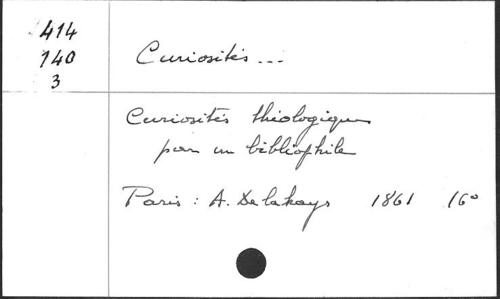 414
140
3
Curiosités...
Curiosités théologiques
par un bibliophile
Paris : A. Delahays 1861 16°